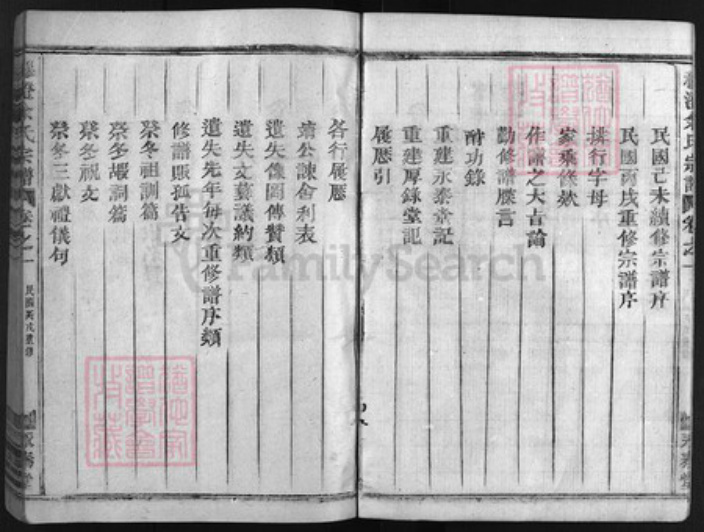 民國己未續修宗譜序
民國丙戌重修宗譜序
排行字母
家乘條欵
作譜之大吉論
勸修譜牒言
酧功錄
重建永泰堂記
重建厚錄堂記
履歷引
各行履歷
靖公諫舍利表
遺失像圖傳贊類
遺失文藝議約類
遺失先年每次重修譜序類
修譜賑孤告文
祭冬祖訓篇
祭冬嘏詞篇
祭冬祝文
祭冬三獻禮儀何
氏宗譜 卷之一
民國丙戌重修
FamilySearch